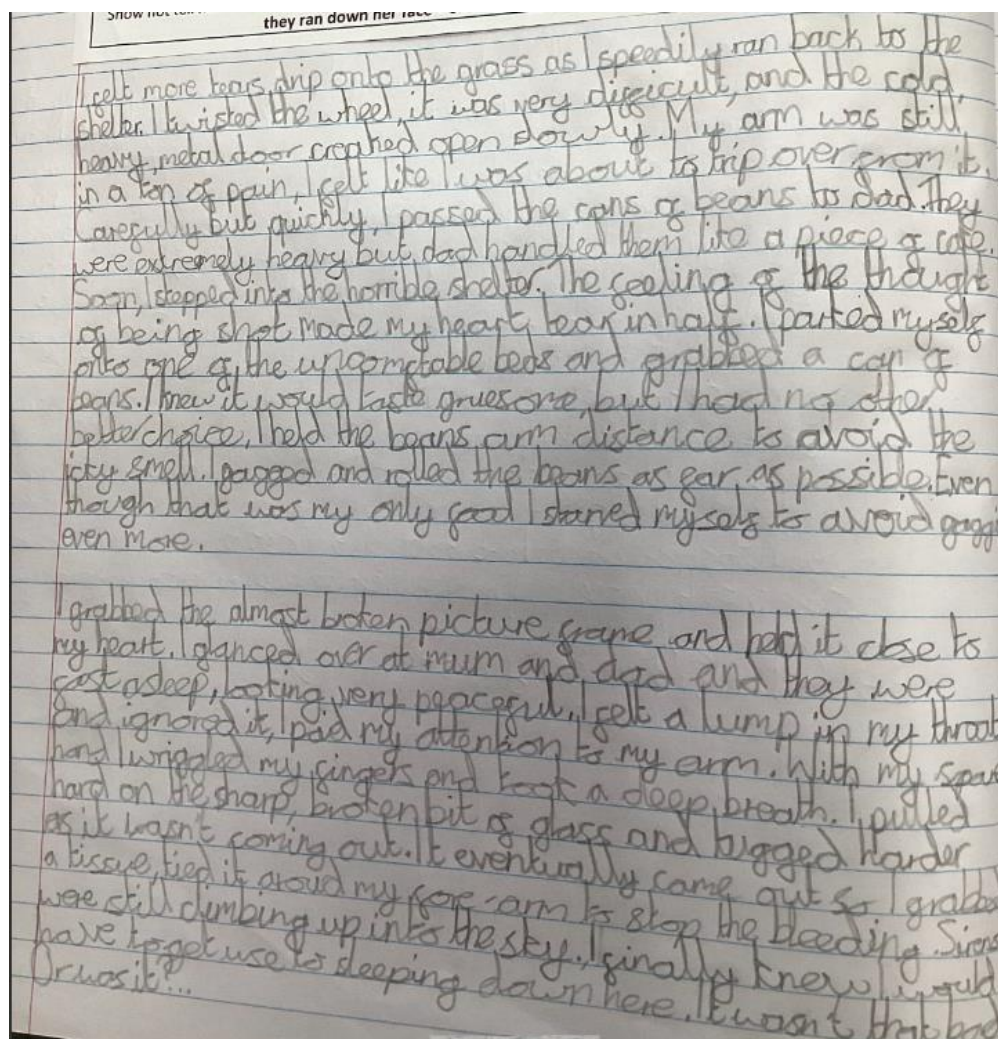 Show not
they ran down her face
I felt more tears drip onto the grass as I speedily ran back to the
shelter. I twisted the wheel, it was very difficult, and the cold,
heavy, metal door creaked open slowly. My arm was still
in a ton of pain, I felt like I was about to trip over from it.
Carefully but quickly, I passed the cans of beans to dad. They
were extremely heavy but dad handled them like a piece of cake.
Soon, I stepped into the horrible shelter. The feeling of the thought
of being shot made my heart tear in half. I parked myself
onto one of the uncomctable beds and grabbed a can of
beans. I knew it would taste gruesome, but I had no other
better choice, I held the beans arm distance to avoid the
icky smell. I gagged and rolled the beans as far as possible. Even
though that was my only food I starved myself to avoid gagg
even more.
I grabbed the almost broken picture frame and held it close to
my heart. I glanced over at mum and dad and they were
fast asleep, looking very peaceful. I felt a lump in my throat
and ignored it, I paid my attention to my arm. With my spare
hand I wriggled my fingers and took a deep breath. I pulled
hard on the sharp, broken bit of glass and tugged harder
as it wasn't coming out. It eventually came out so I grabbed
a tissue, tied it aroud my fore-arm to stop the bleeding. Sirens
were still climbing up into the sky. I finally knew I would
have to get use to sleeping down here. It wasn't that bad
Or was it?...